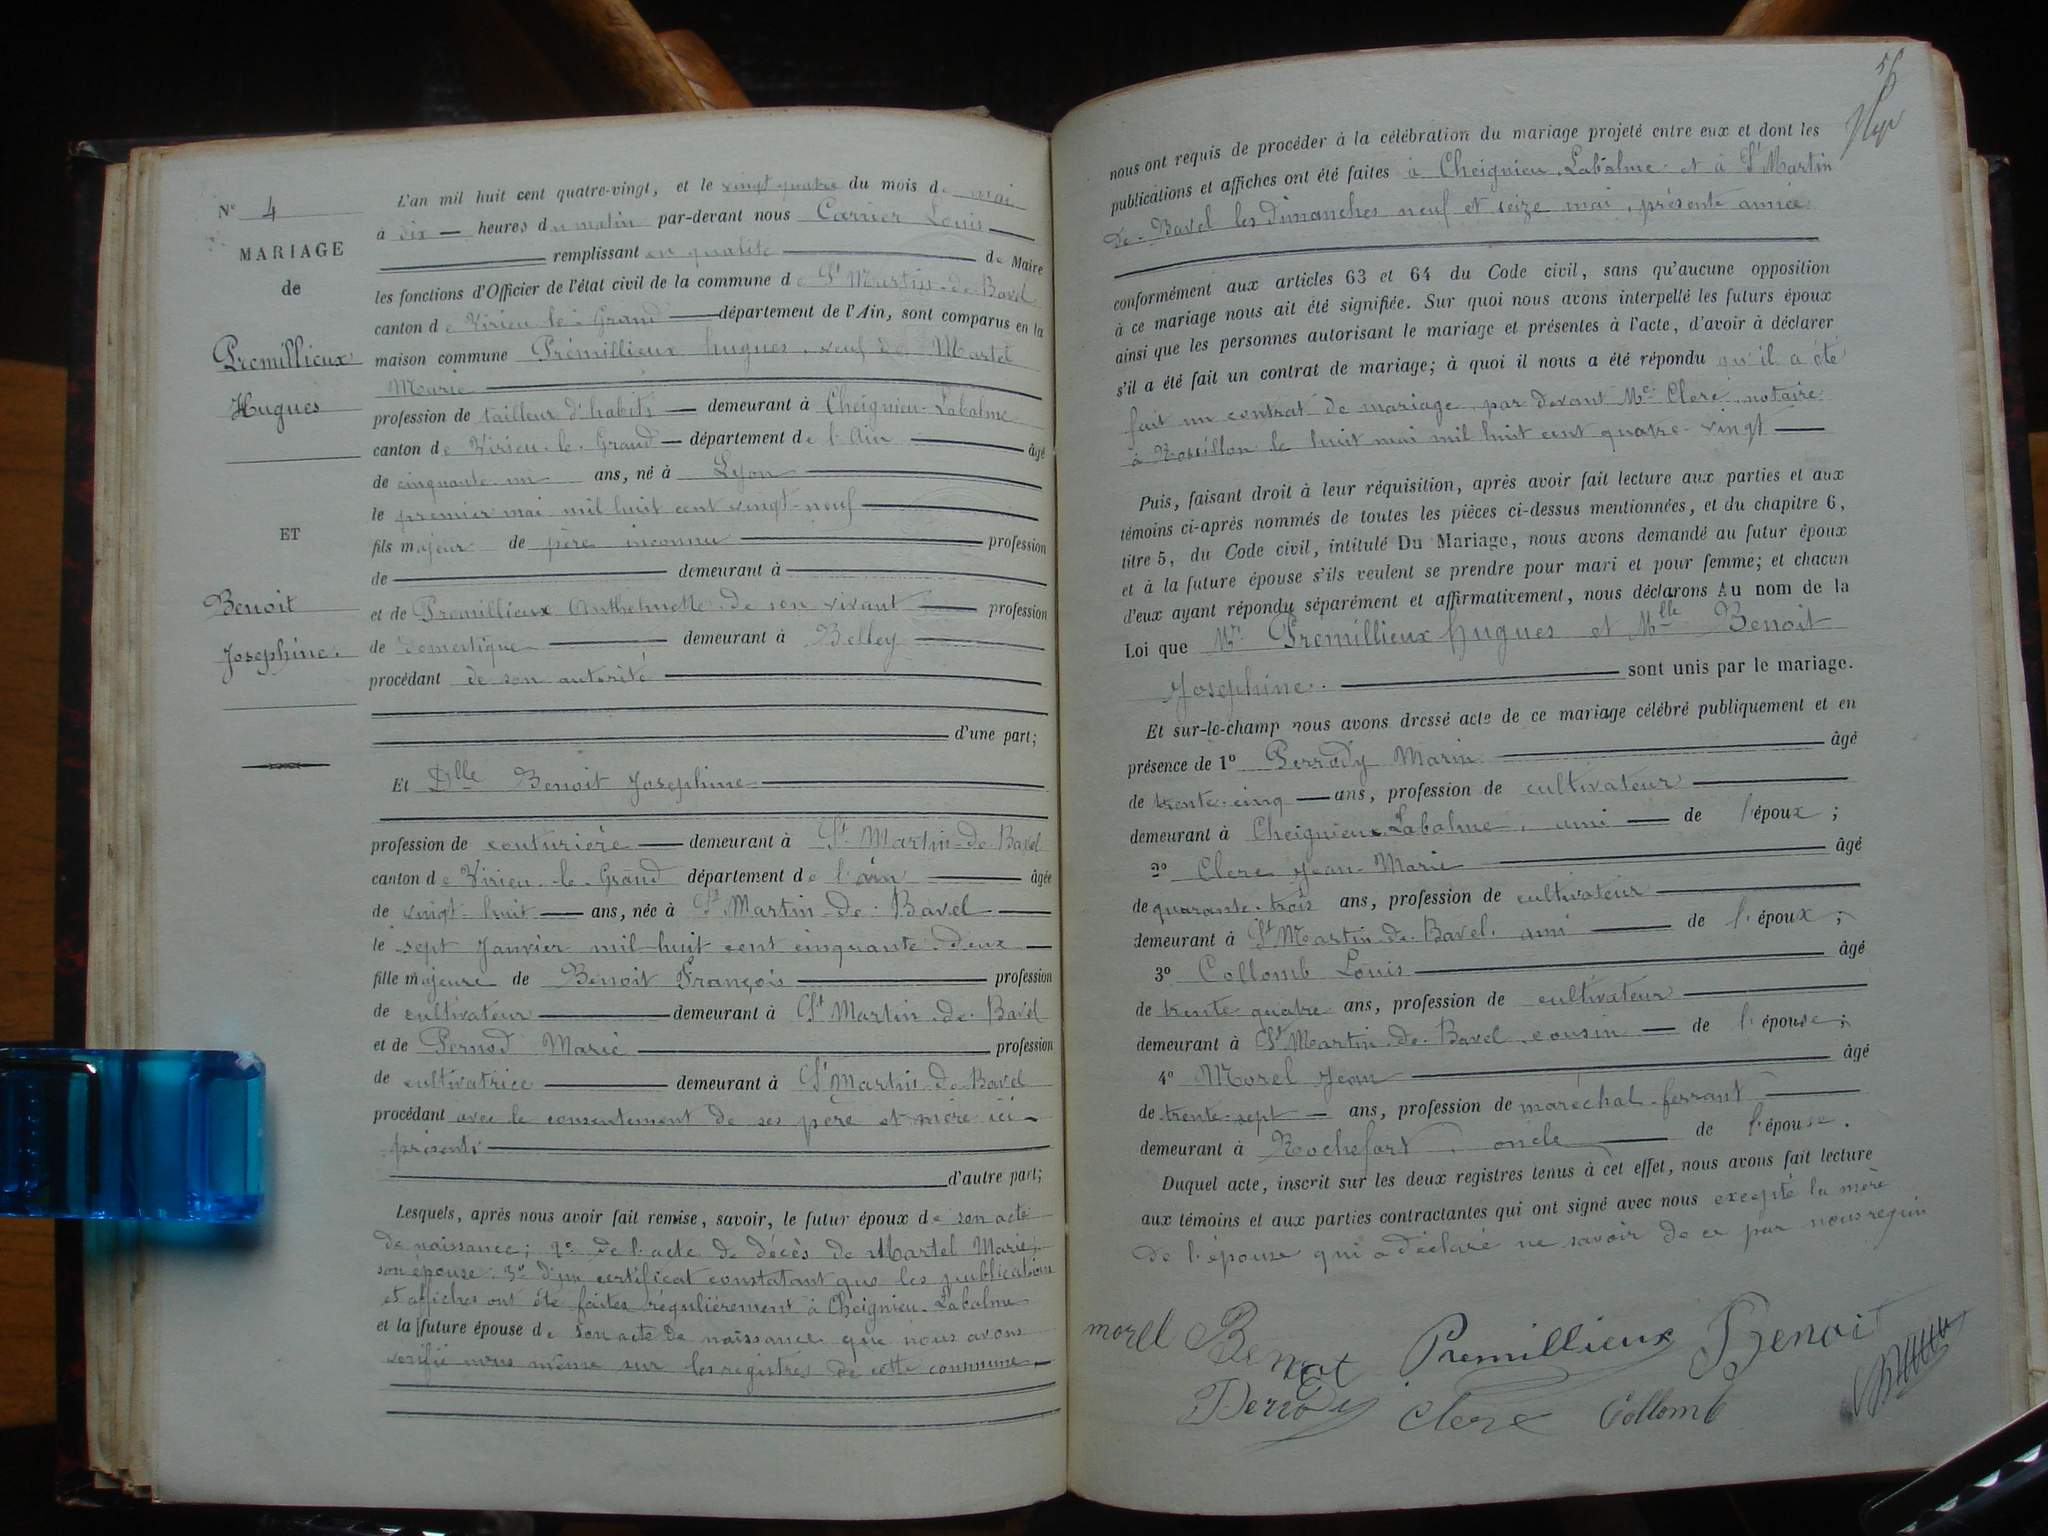 N° 4
MARIAGE
de
Premillieux
Hugues
ET
Benoit
Josephine.
L'an mil huit cent quatre-vingt, et le vingt quatre du mois de mai
à dix heures du matin par-devant nous Carrier Louis
remplissant en qualité de Maire
les fonctions d'Officier de l'état civil de la commune de St Martin-de-Bavel
canton de Virieu-le-Grand département de l'Ain, sont comparus en la
maison commune Prémillieux hugues, veuf de Martel
Marie
profession de tailleur d'habits demeurant à Cheignieu-Labalme
canton de Virieu-le-Grand département de l'Ain âgé
de cinquante un ans, né à Lyon
le premier mai mil huit cent vingt-neuf
fils majeur de père inconnu profession
de demeurant à
et de Premillieux Anthelmette de son vivant profession
de domestique demeurant à Belley
procédant de son autorité
d'une part;
Et Dlle Benoit Josephine
profession de couturière demeurant à St Martin-de-Bavel
canton de Virieu-le-Grand département de l'ain âgée
de vingt-huit ans, née à St Martin-de-Bavel
le sept Janvier mil-huit cent cinquante-deux
fille majeure de Benoit François profession
de cultivateur demeurant à St Martin-de-Bavel
et de Pernod Marie profession
de cultivatrice demeurant à St Martin-de-Bavel
procédant avec le consentement de ses père et mère ici-
présents
d'autre part;
Lesquels, après nous avoir fait remise, savoir, le futur époux de son acte
de naissance; 2° de l'acte de décès de Martel Marie,
son épouse. 3° d'un certificat constatant que les publications
et affiches ont été faites régulièrement à Cheignieu-Labalme
et la future épouse de son acte de naissance que nous avons
vérifié nous même sur les registres de cette commune.
nous ont requis de procéder à la célébration du mariage projeté entre eux et dont les
publications et affiches ont été faites à Cheignieu-Labalme et à St Martin
de-Bavel les dimanches neuf et seize mai, présente année
conformément aux articles 63 et 64 du Code civil, sans qu'aucune opposition
à ce mariage nous ait été signifiée. Sur quoi nous avons interpellé les futurs époux
ainsi que les personnes autorisant le mariage et présentes à l'acte, d'avoir à déclarer
s'il a été fait un contrat de mariage; à quoi il nous a été répondu qu'il a été
fait un contrat de mariage par devant Me Clerc, notaire
à Rossillon le huit mai mil huit cent quatre-vingt
Puis, faisant droit à leur réquisition, après avoir fait lecture aux parties et aux
témoins ci-après nommés de toutes les pièces ci-dessus mentionnées, et du chapitre 6,
titre 5, du Code civil, intitulé Du Mariage, nous avons demandé au futur époux
et à la future épouse s'ils veulent se prendre pour mari et pour femme; et chacun
d'eux ayant répondu séparément et affirmativement, nous déclarons Au nom de la
Loi que Mr Premillieux hugues et Mlle Benoit
Josephine. sont unis par le mariage.
Et sur-le-champ nous avons dressé acte de ce mariage célébré publiquement et en
présence de 1° Perrody Marin âgé
de trente-cinq ans, profession de cultivateur
demeurant à Cheignieux-Labalme, ami de l'époux;
2° Clerc Jean-Marie âgé
de quarante-trois ans, profession de cultivateur
demeurant à St Martin-de-Bavel. ami de l'époux;
3° Collomb Louis âgé
de trente quatre ans, profession de cultivateur
demeurant à St Martin-de-Bavel, cousin de l'épouse;
4° Morel Jean âgé
de trente-sept ans, profession de maréchal-ferrant
demeurant à Rochefort, oncle de l'épouse.
Duquel acte, inscrit sur les deux registres tenus à cet effet, nous avons fait lecture
aux témoins et aux parties contractantes qui ont signé avec nous excepté la mère
de l'épouse qui a déclaré ne savoir de ce par nous requis
morel Benoit Premillieux Benoit
Perrody Clerc Collomb